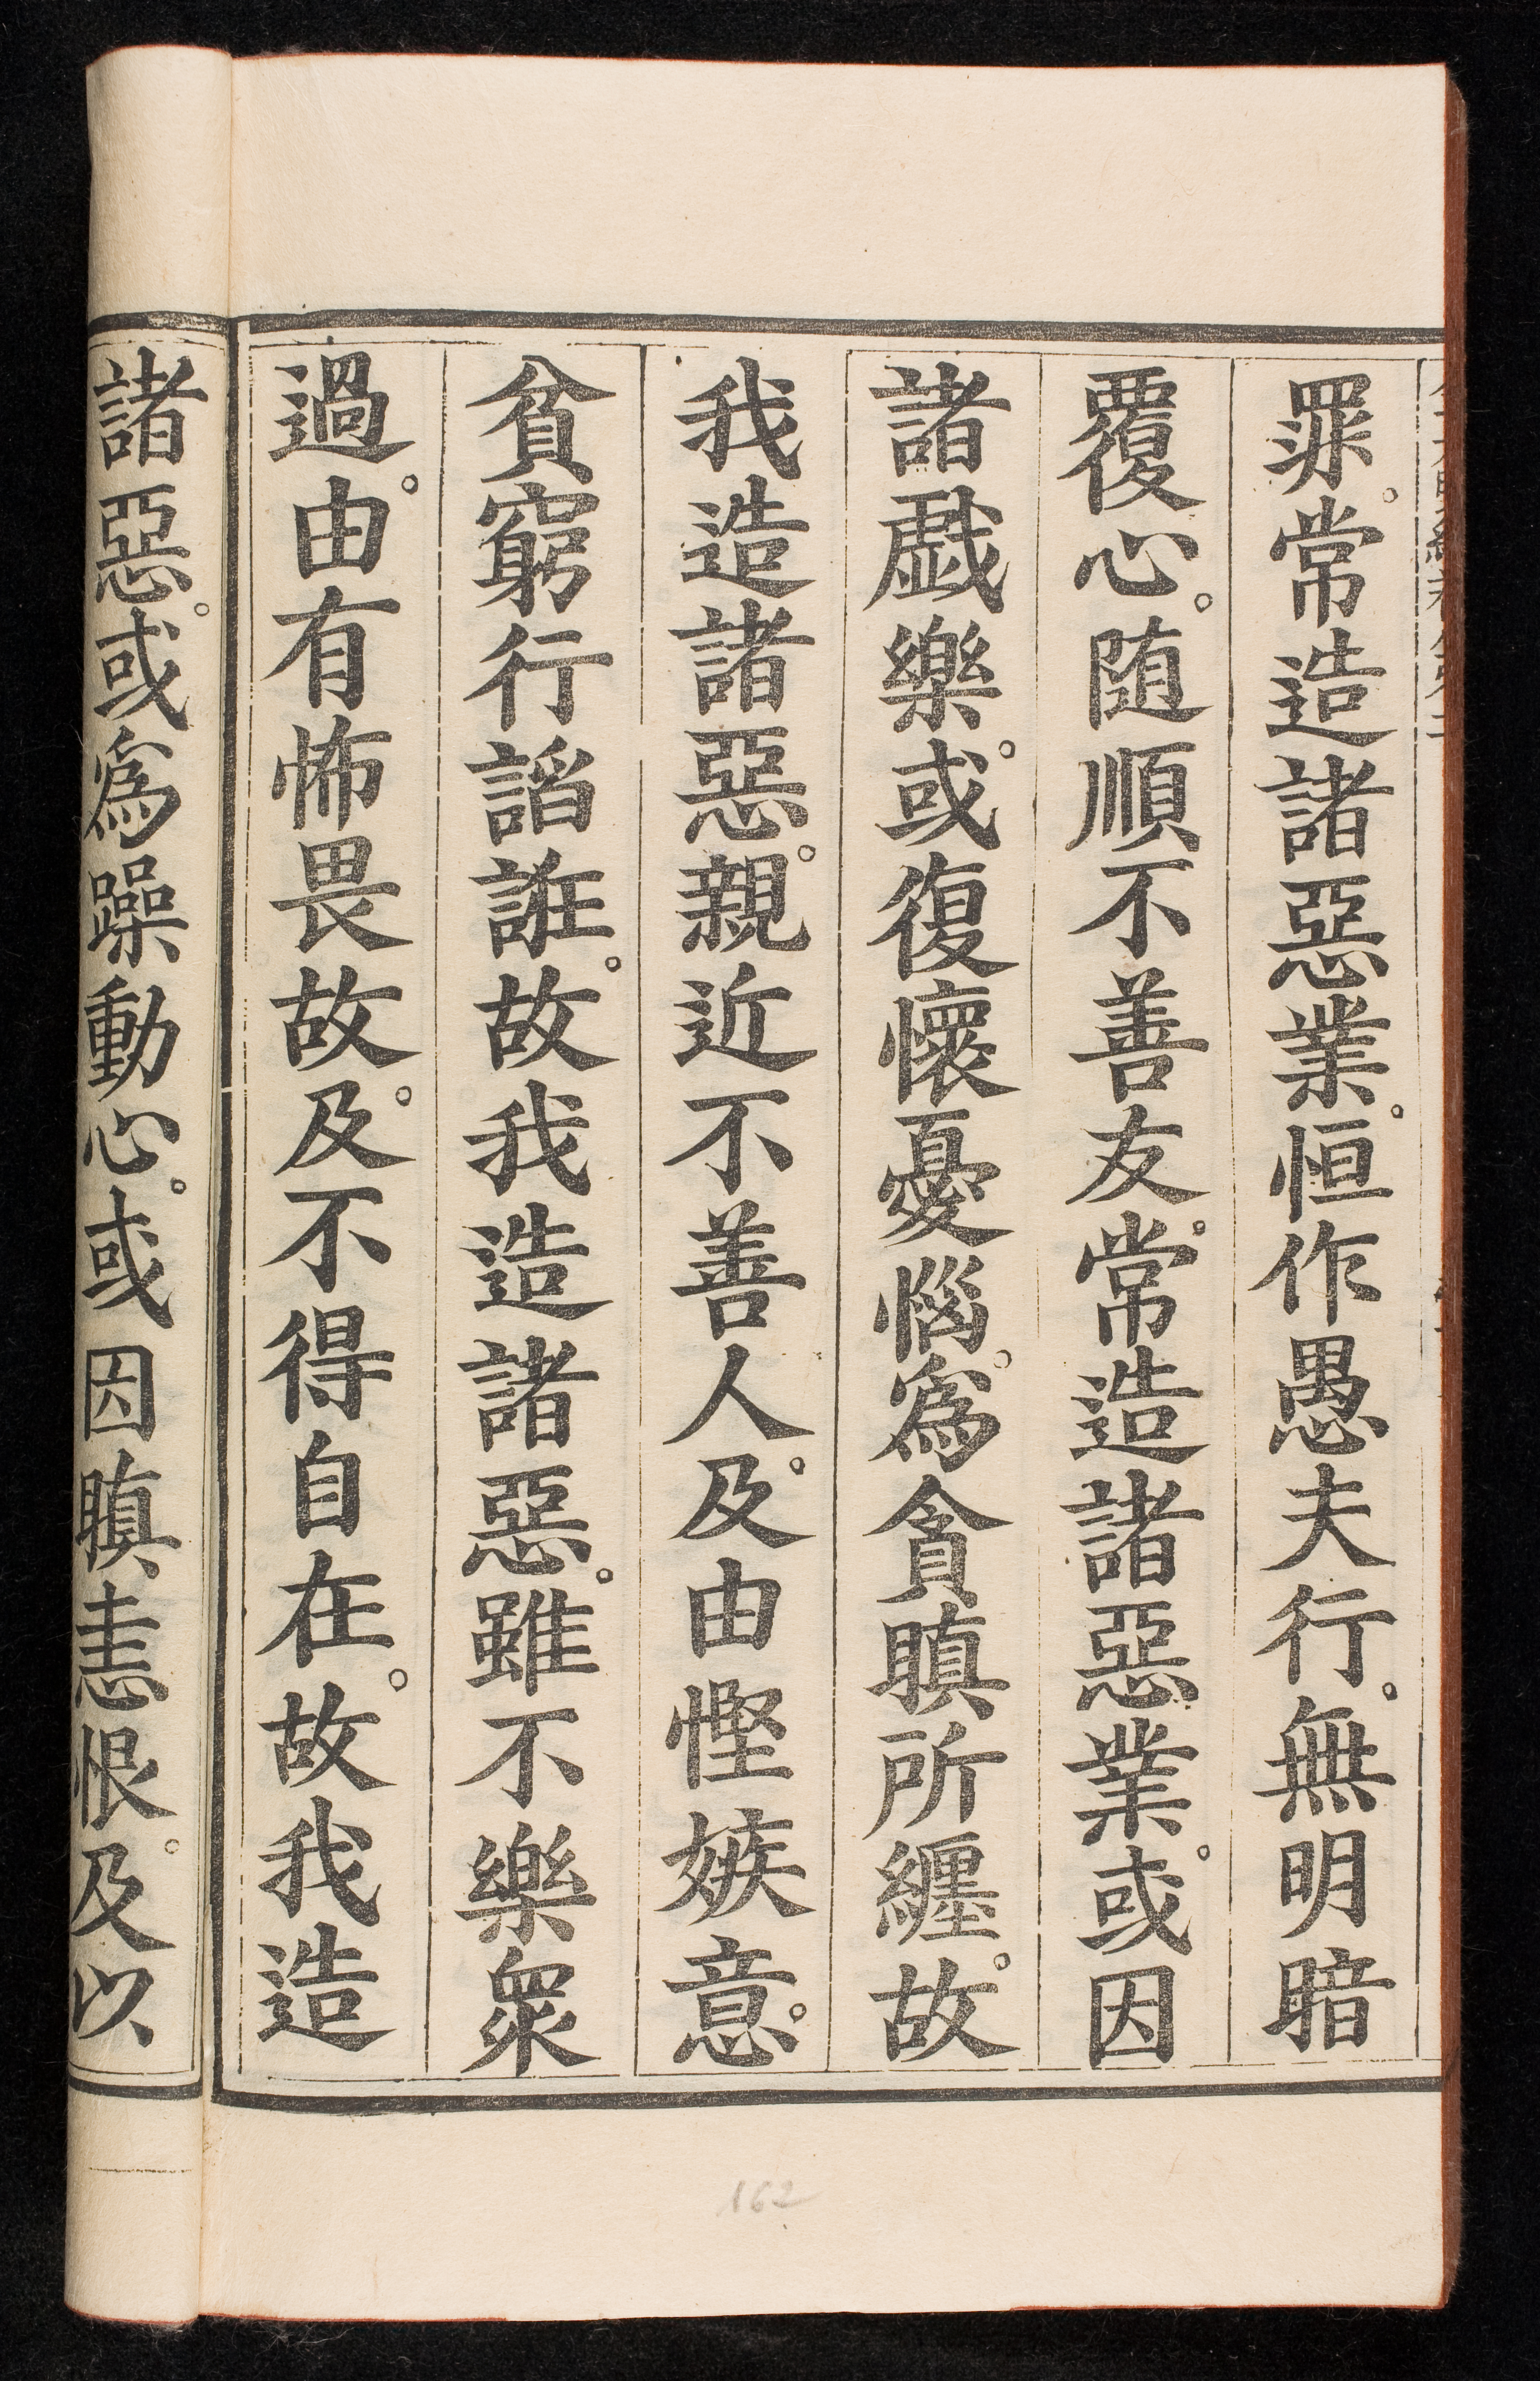 罪。常造諸惡業。恒作愚夫行。無明暗
覆心。随順不善友。常造諸惡業。或因
諸戯樂。或復懷憂惱。為貪瞋所纏。故
我造諸惡。親近不善人。及由慳嫉意。
貧窮行謟誑。故我造諸惡。雖不樂衆
過。由有怖畏故。及不得自在。故我造
諸惡。或為躁動心。或因瞋恚恨。及以
162